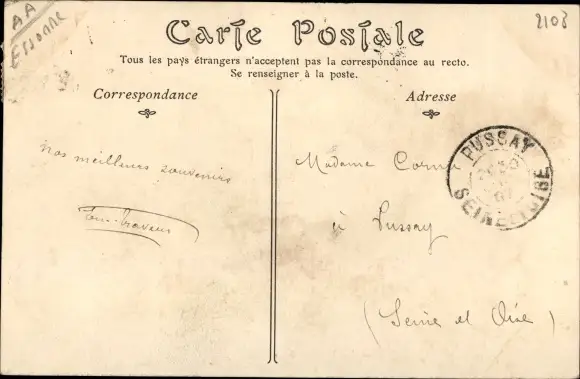 AA
ESSONNE
2108
Carte Postale
Tous les pays étrangers n'acceptent pas la correspondance au recto.
Se renseigner à la poste.
Correspondance
Adresse
Nos meilleurs souvenirs
Madame
à Pussay
(Seine et Oise)
PUSSAY
SEINE-ET-OISE